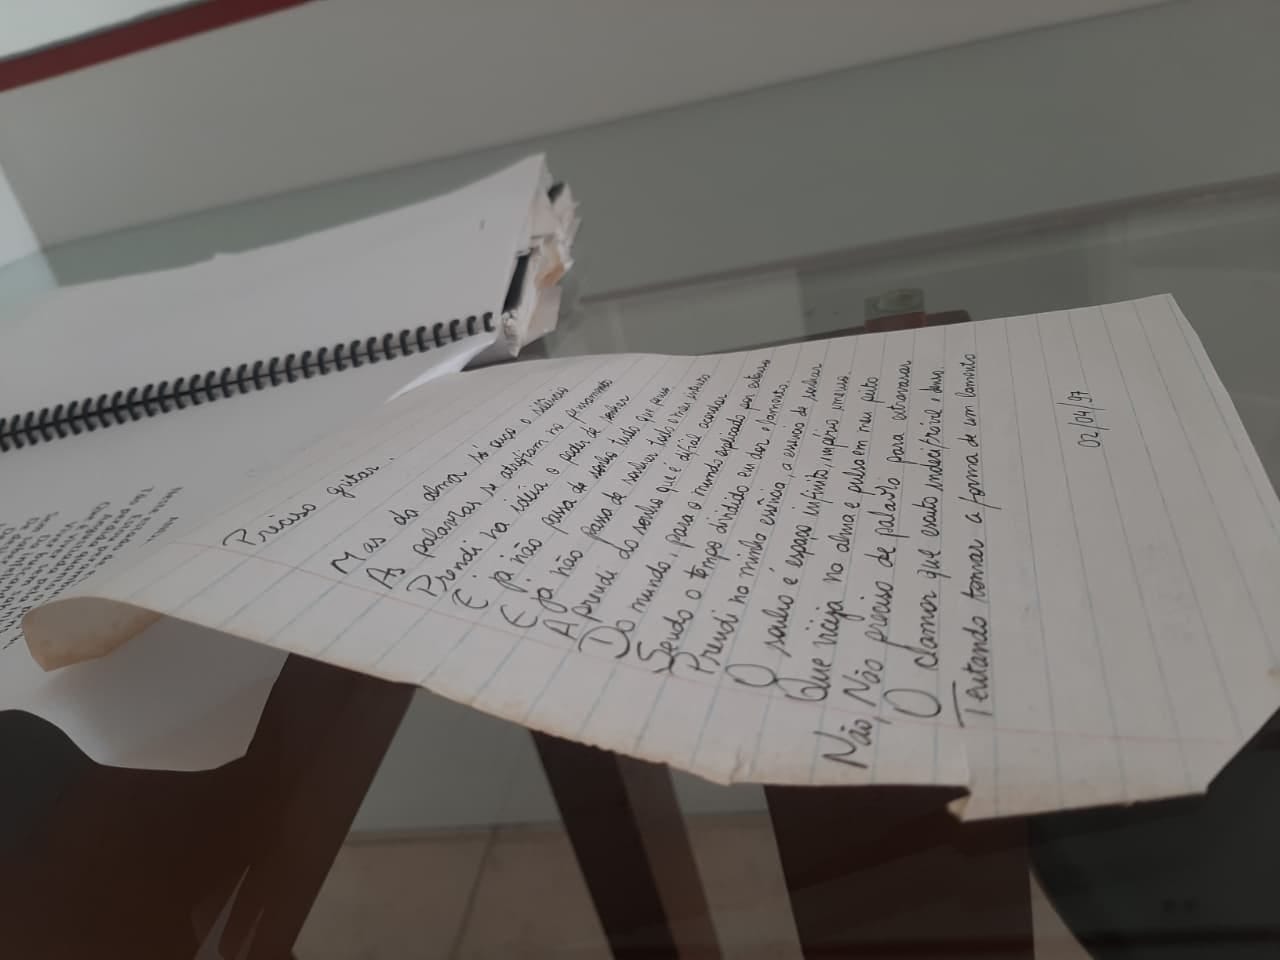 Preciso gritar.
Mas da alma só ouço o silêncio
As palavras se atrofiam no pensamento
Prendi na idéia o poder de sonhar
E já não passa de sonho tudo que penso.
E já não passo de sonhar tudo o meu
Aprendi do sonho que é afinal acordar
Do mundo, para o mundo explicado por extenso
Sendo o tempo dividido em dor e lamento.
Prendi na minha essência, a essência de sonhar
O sonho é espaço infinito, império imenso.
Que viceja na alma e pulsa em meu peito
Não, Não preciso de palavra para extravasar
O clamor que ecoa indecifrável e denso.
Tentando tomar a forma de um lamento
02/04/97